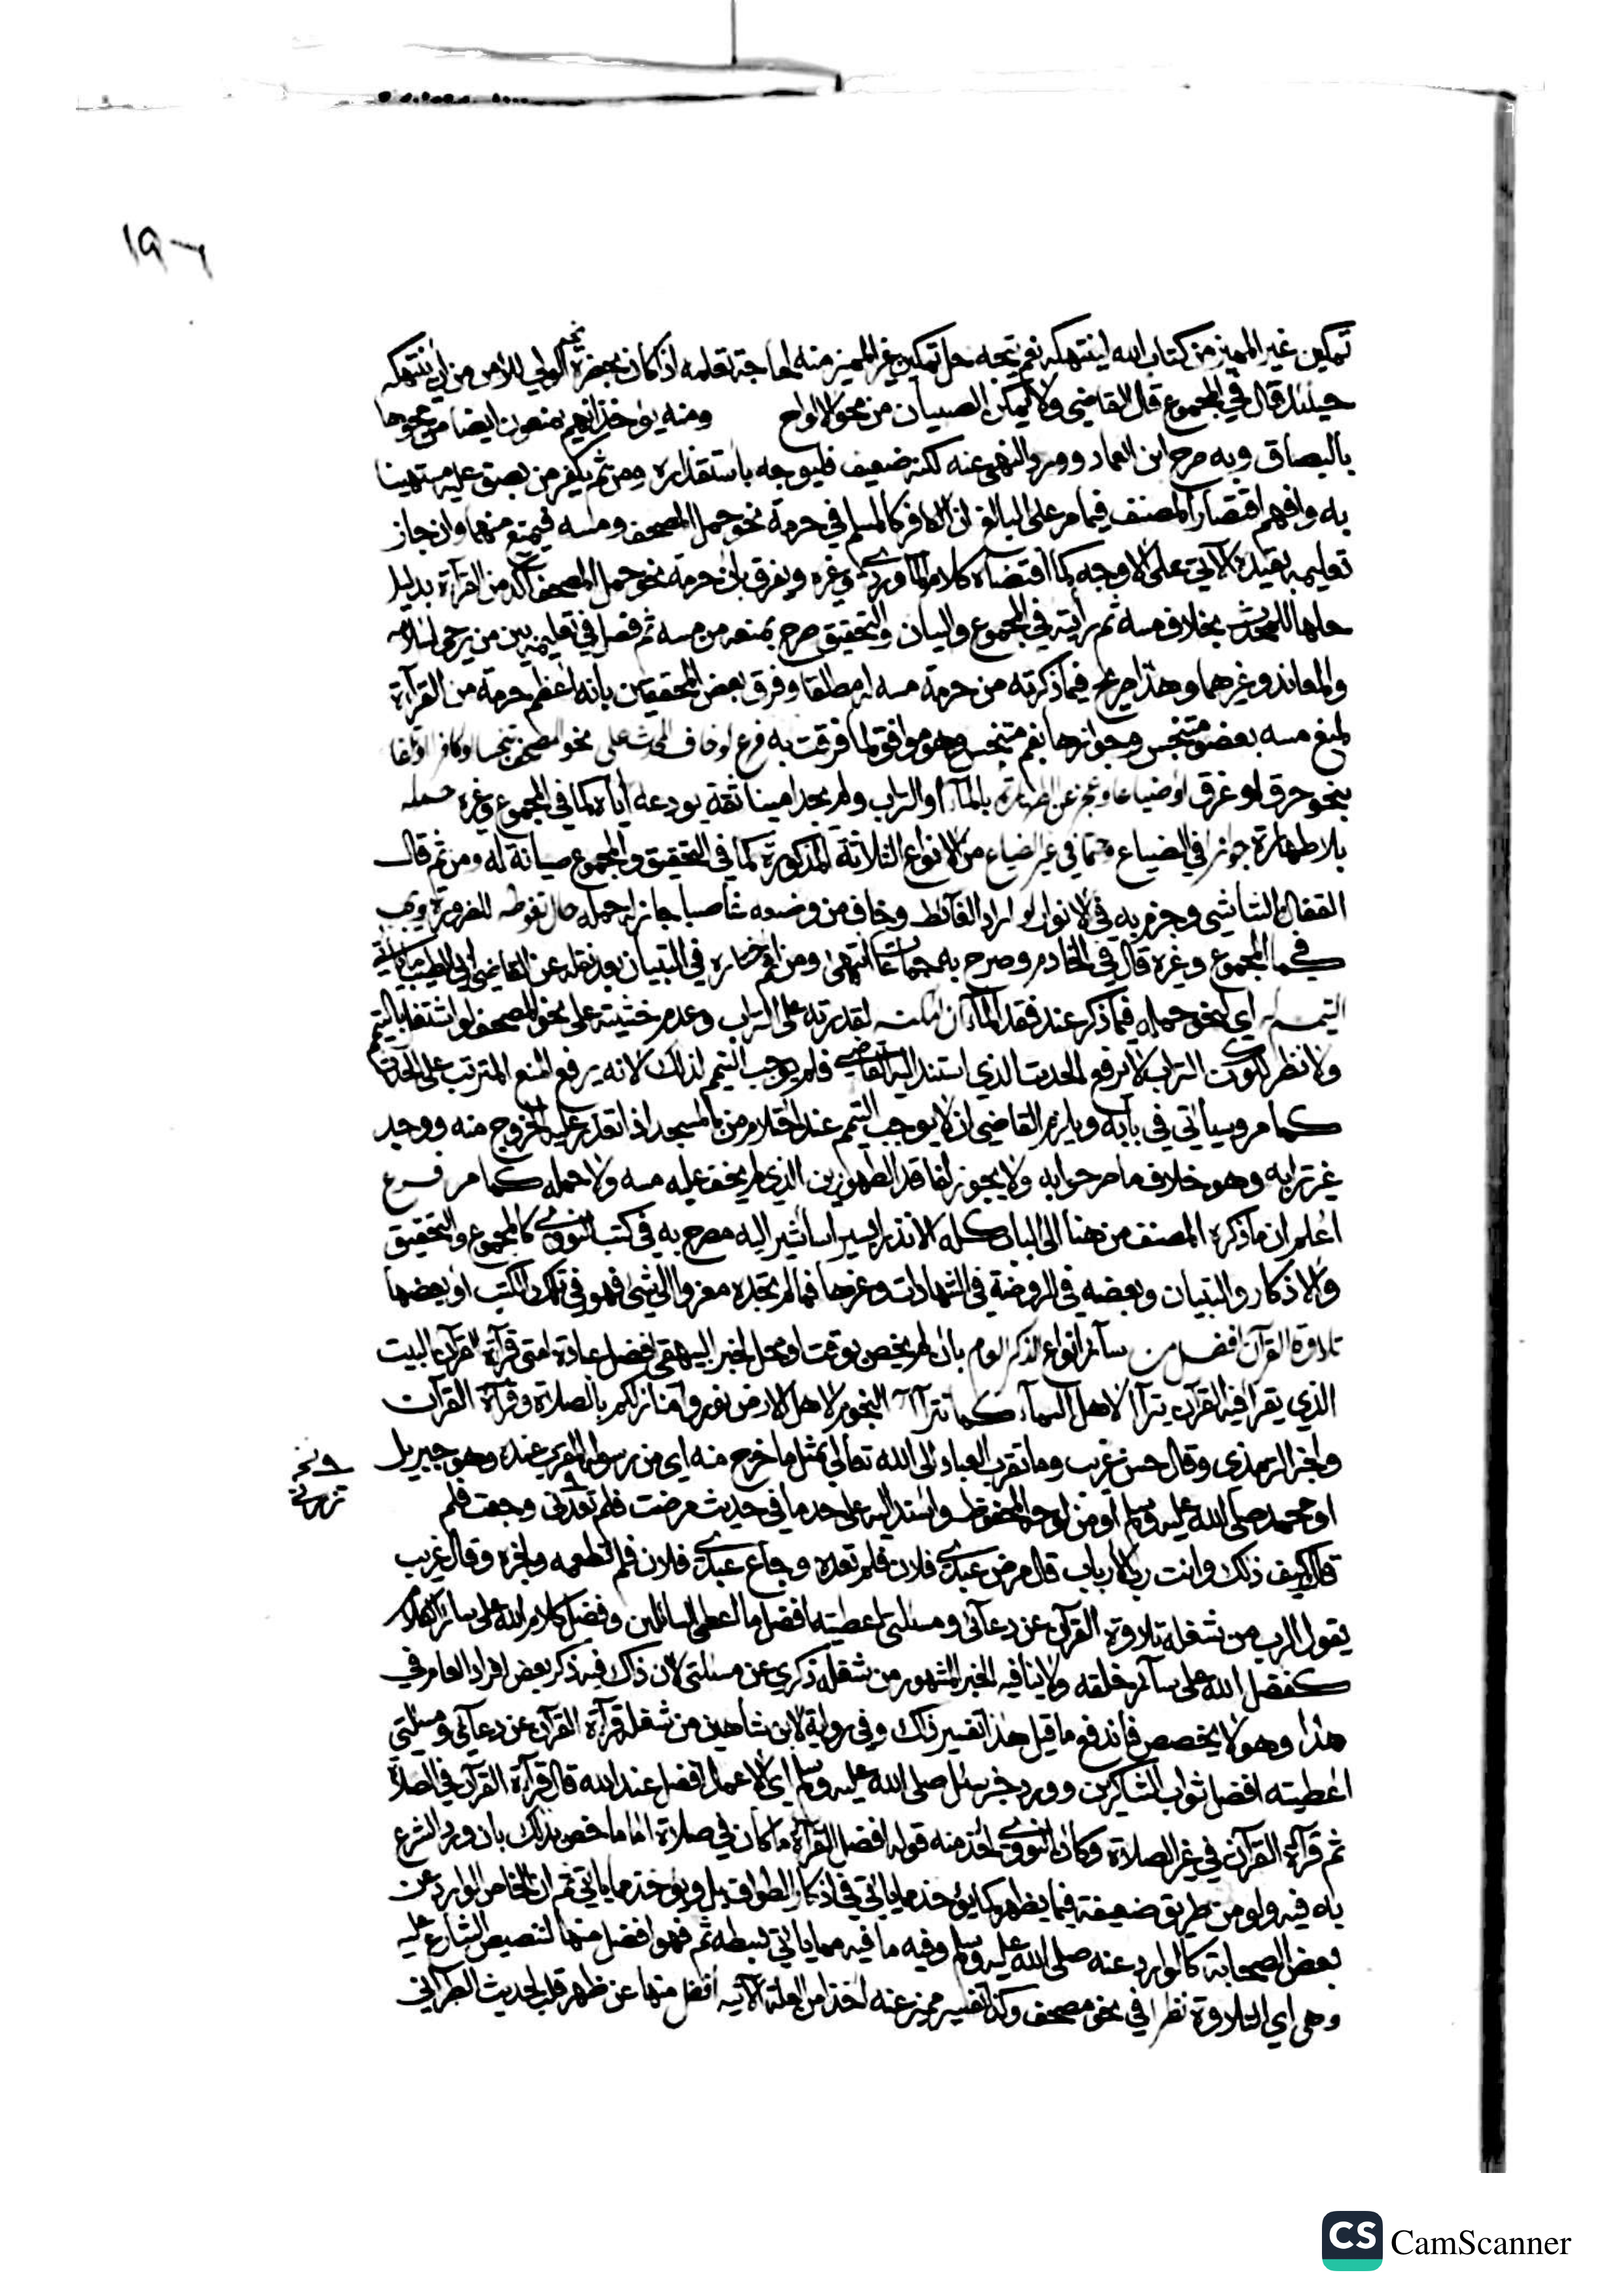 ١٩٦
تمكين غير المميز من كتاب الله لينتهكه نعم يتجه حل تمكين غير المميز منه لحاجة تعلمه اذا كان بحضرة نحو الولي للامن من ان ينتهكه
حينئذ قال في المجموع قال القاضي ولا تمكن الصبيان من محو الالواح ومنه يؤخذ انهم يمنعون ايضا من محوها
بالبصاق وبه صرح ابن العماد وورد النهي عنه لكنه ضعيف فليوجه باستقذاره ومن ثم يكفر من بصق عليه مستهينا
به وافهم اقتصار المصنف فيما مر على البالغ ان الكافر كالمسلم في حرمة نحو حمل المصحف ومسه فيمنع منهما وان جاز
تعليمه بقيده الاتي على الاوجه كما اقتضاه كلام الماوردي وغيره ويفرق بان حرمة نحو حمل المصحف آكد من القرآءة بدليل
حلها للمحدث بخلاف مسه ثم رأيته في المجموع والبيان والتحقيق صرح بمنعه من مسه ثم فصل في تعليمه بين من يرجى اسلامه
والمعاند وغيرهما وهذا صريح فيما ذكرته من حرمة مسه له مطلقا وفرق بعض المحققين بانه اعظم حرمة من القرآءة
لمنع مسه بعضو متنجس وجوازها بفم متنجس وهو موافق لما فرقت به فرع لو خاف المحدث على نحو المصحف تنجسا او كافرا او تلفا
بنحو حرق او غرق او ضياعا وعجز عن الطهارة بالمآء او التراب ولم يجد امينا ثقة يودعه اياه كما في المجموع وغيره حمله
بلا طهارة جوازا في الضياع وحتما في غير الضياع من الانواع الثلاثة المذكورة كما في التحقيق والمجموع صيانة له ومن ثم قال
القفال الشاشي وجزم به في الانوار لو اراد الغآئط وخاف من وضعه غاصبا جاز له حمله حال تغوطه للضرورة ويجب
كما في المجموع وغيره قال في الخادم وصرح به جماعات انتهى ومن ثم اختاره في التبيان بعد نقله عن القاضي ابي الطيب
التيمم له اي لنحو حمله فيما ذكر عند فقد المآء ان امكنه لقدرته على التراب وعدم خشيته على نحو المصحف لو اشتغل بالتيمم
ولا نظر لكون التراب لا يرفع الحدث الذي استند اليه القاضي فلم يوجب التيمم لذلك لانه يرفع المنع المترتب على الحدث
كما مر وسيأتي في بابه ويلزم القاضي ان لا يوجب التيمم عند احتلام من بالمسجد اذا تعذر عليه الخروج منه ووجد
غير ترابه وهو خلاف ما صرحوا به ولا يجوز لفاقد الطهورين الذي لم يخف عليه مسه ولا حمله كما مر فرع
اعلم ان ما ذكره المصنف من هنا الى الباب كله الا نذرا يسيرا ساشير اليه مصرح به في كتب النووي كالمجموع والتحقيق
والاذكار والتبيان وبعضه في الروضة في الشهادات وغيرها فما لم تجده معزوا الى شئ فهو في تلك الكتب او بعضها
تلاوة القرآن افضل من سآئر انواع الذكر العام بان لم يخص بوقت او محل لخبر البيهقي افضل عبادة امتي قرآءة القرآن البيت
الذي يقرا فيه القرآن يترآا لاهل السمآء كما تترآا النجوم لاهل الارض نوروا منازلكم بالصلاة وقرآءة القرآن
ولخبر الترمذي وقال حسن غريب وما تقرب العباد الى الله تعالى بمثل ما خرج منه اي من رسوله المقرب عنده وهو جبريل
او محمد صلى الله عليه وسلم او من لوحه المحفوظ واسند اليه على حد ما في حديث مرضت فلم تعدني وجعت فلم
قال كيف ذلك وانت رب الارباب قال مرض عبدي فلان فلم تعده وجاع عبدي فلان فلم تطعمه ولخبره وقال غريب
يقول الرب من شغله تلاوة القرآن عن دعآئي ومسئلتي اعطيته افضل ما اعطي السائلين وفضل كلام الله على سائر الكلام
كفضل الله على سآئر خلقه ولا ينافيه الخبر المشهور من شغله ذكري عن مسئلتي لان ذاك فيه ذكر بعض افراد العام وفي
هذا وهو لا يخصص فاندفع ما قيل هذا تفسير ذاك وفي رواية لابن شاهين من شغله قرآءة القرآن عن دعآئي ومسئلتي
اعطيته افضل ثواب الشاكرين وورد خبر سئل صلى الله عليه وسلم اي الاعمال افضل عند الله قال قرآءة القرآن في الصلاة
ثم قرآءة القرآن في غير الصلاة وكان النووي اخذ منه قوله افضل القرآءة ما كان في صلاة اما ما خص بذلك بان ورد الشرع
به فيه ولو من طريق ضعيفة فيما يظهر كما يؤخذ مما يأتي في اذكار الطواف بل ويؤخذ مما يأتي ثم ان الخاص الوارد عن
بعض الصحابة كالوارد عنه صلى الله عليه وسلم وفيه ما فيه مما يأتي بسطه ثم فهو افضل منها لتنصيص الشارع عليه
وهي اي التلاوة نظرا في نحو مصحف وكذا تفسير مميز عنه اخذا من العلة الآتية افضل منها عن ظهر قلب لحديث الطبراني
CS CamScanner